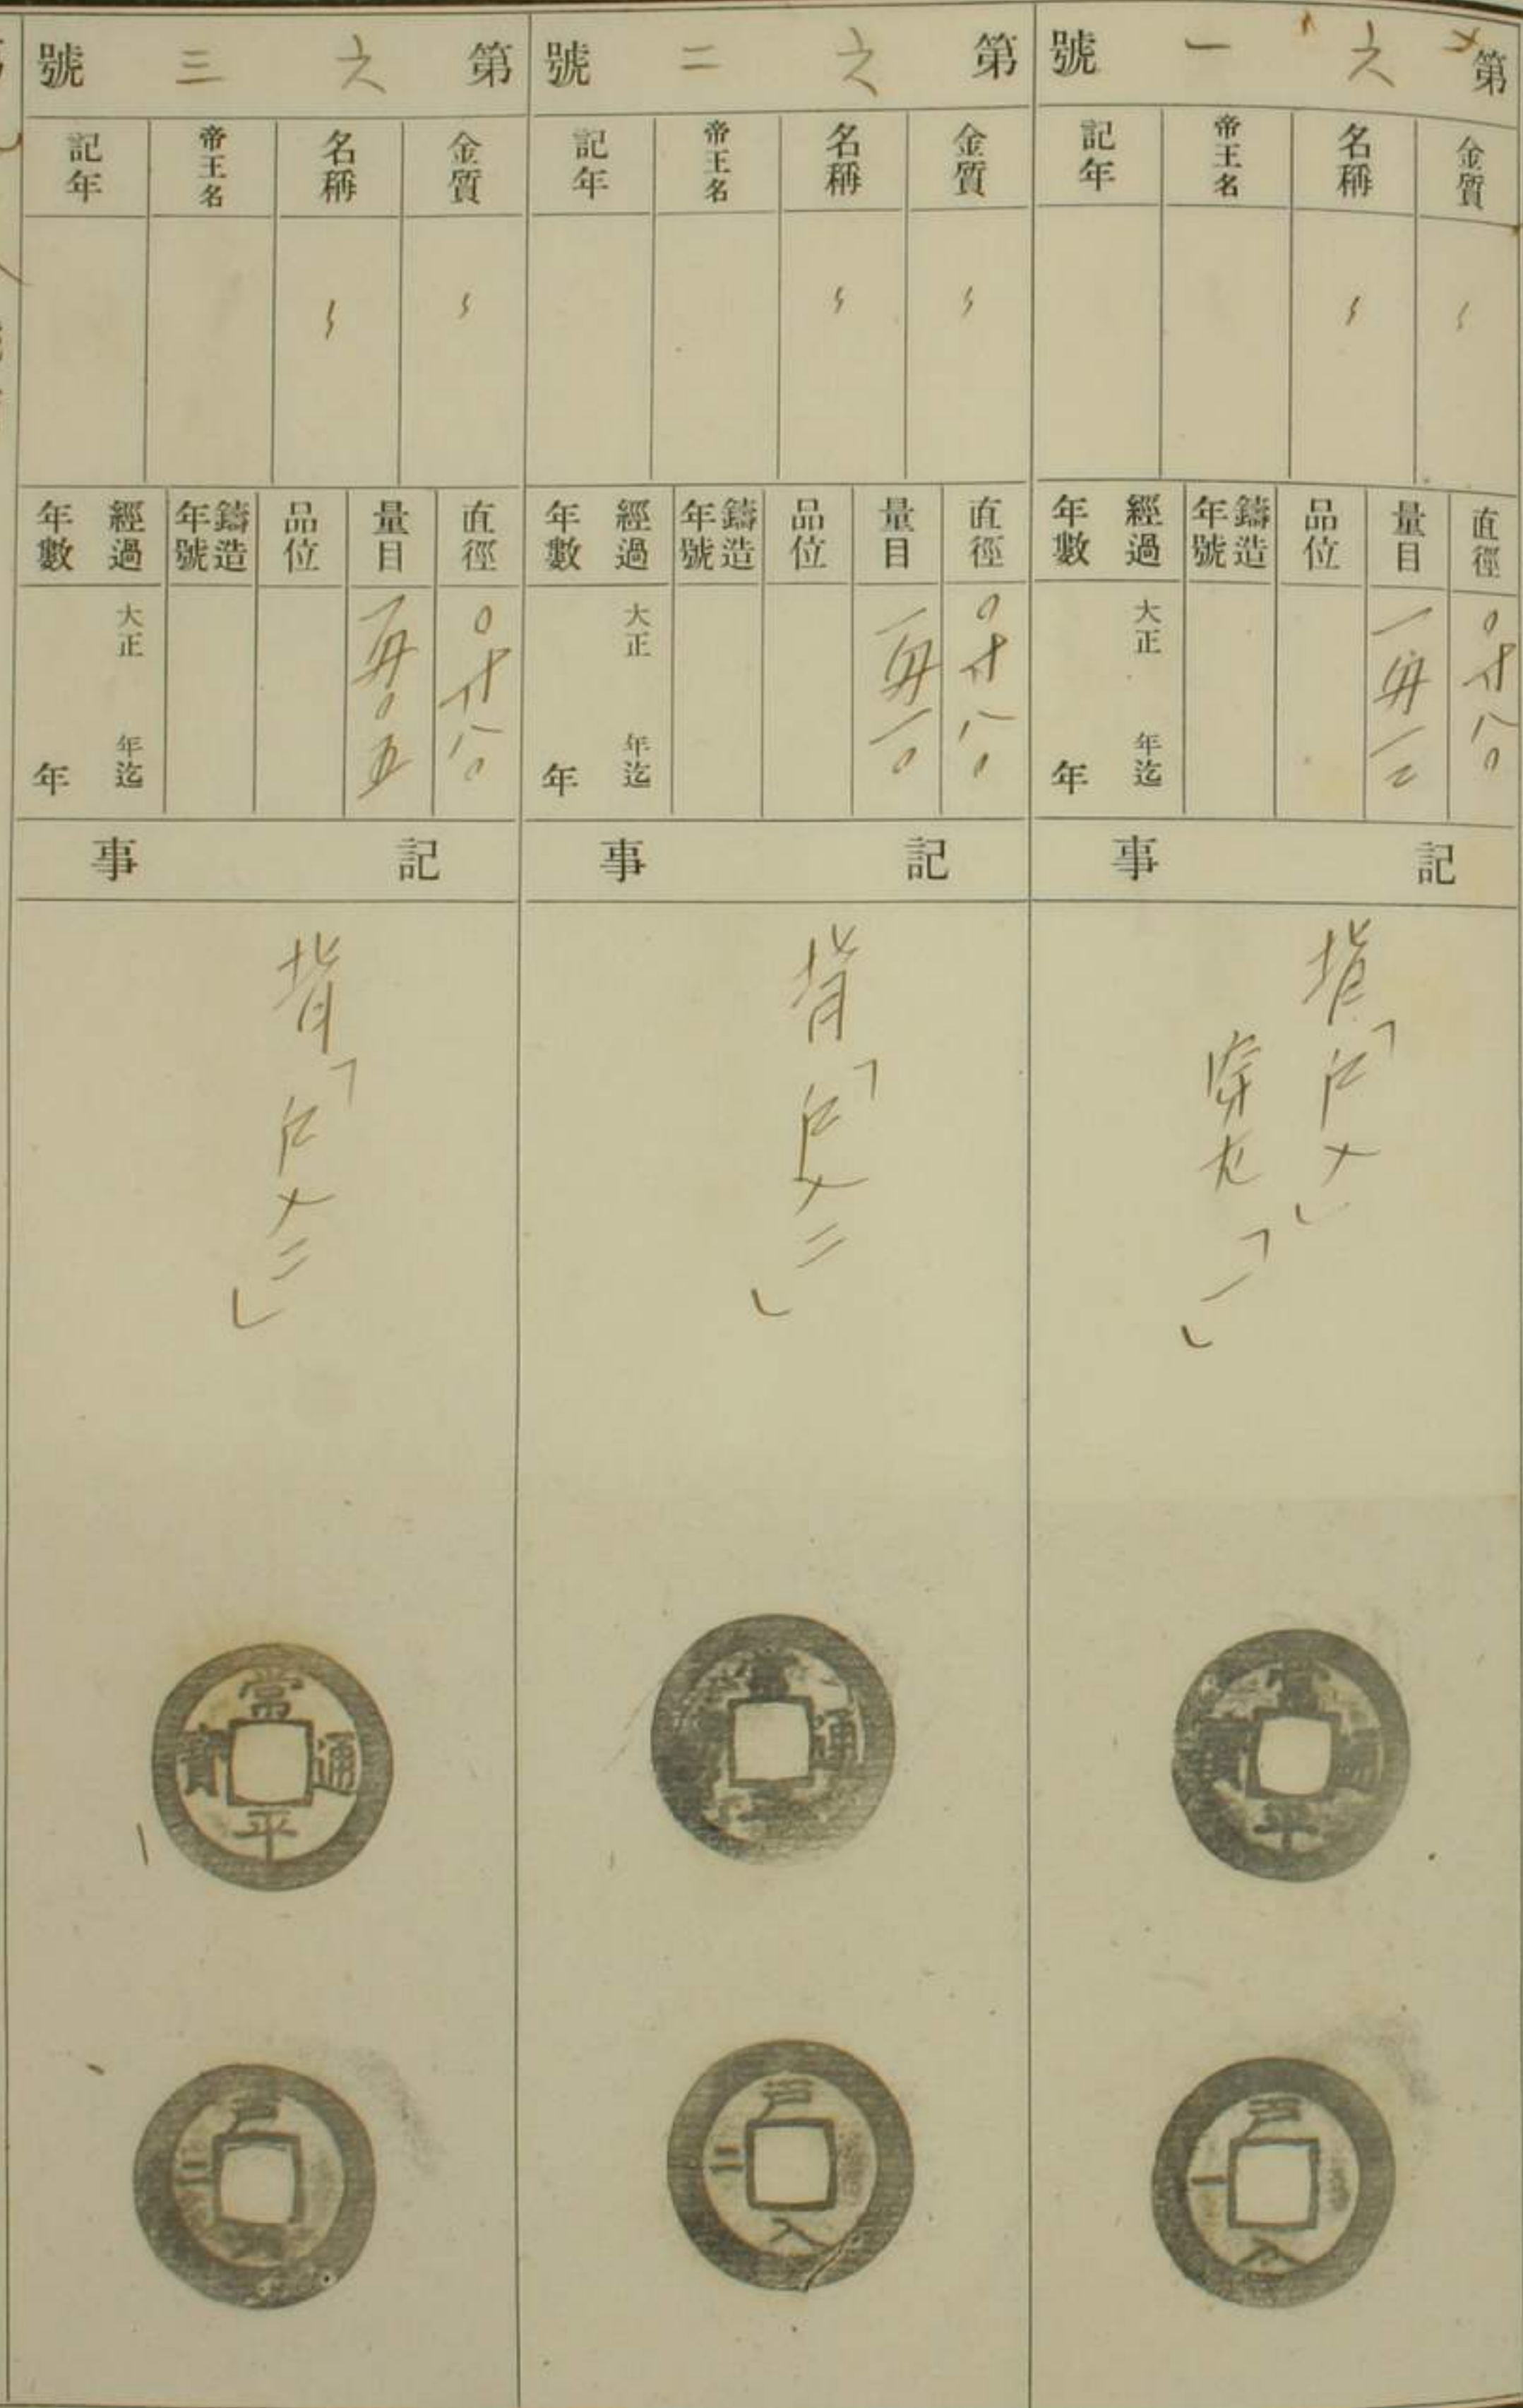 第六一號
金質
名稱
帝王名
記年
〻
〻
直徑
量目
品位
鑄造年號
經過年數
〇寸八〇
一匁一二
大正 年迄
年
記事
背「戶入」
穿左「一」
常平通寶
戶入一
第六二號
金質
名稱
帝王名
記年
〻
〻
直徑
量目
品位
鑄造年號
經過年數
〇寸八〇
一匁一〇
大正 年迄
年
記事
背「戶入二」
常通
戶入二
第六三號
金質
名稱
帝王名
記年
〻
〻
直徑
量目
品位
鑄造年號
經過年數
〇寸八〇
一匁〇五
大正 年迄
年
記事
背「戶入二」
常平通寶
戶二